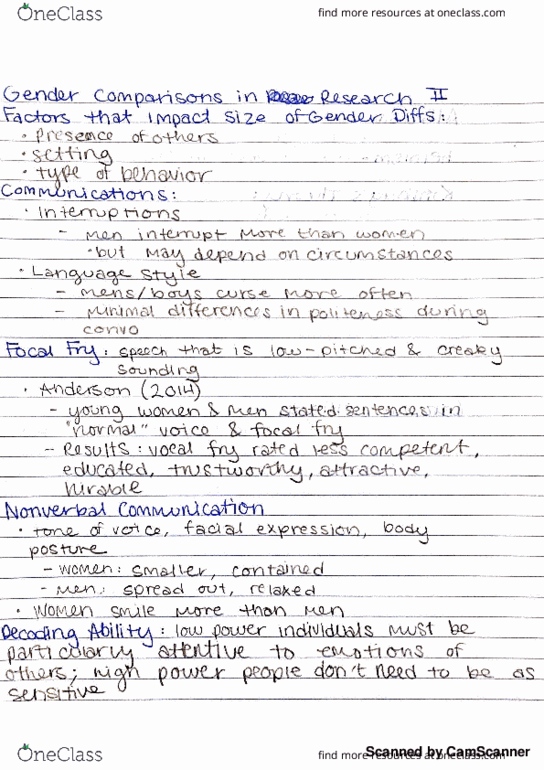 OneClass
find more resources at oneclass.com
Gender Comparisons in Research II
Factors that Impact Size of Gender Diffs:
• Presence of others
• setting
• type of behavior
Communications:
• Interruptions
- men interrupt more than women
• but may depend on circumstances
• Language Style
- mens/boys curse more often
- minimal differences in politeness during
convo
Focal Fry: speech that is low-pitched & creaky
sounding
• Anderson (2014)
- young women & men stated sentences in
"normal" voice & focal fry
- Results: vocal fry rated less competent,
educated, trustworthy, attractive,
hirable
Nonverbal Communication
• tone of voice, facial expression, body
posture
- women: smaller, contained
- men: spread out, relaxed
• Women smile more than men
Decoding Ability: low power individuals must be
particularly attentive to emotions of
others; high power people don't need to be as
sensitive
OneClass
find more resources at oneclass.com
Scanned by CamScanner